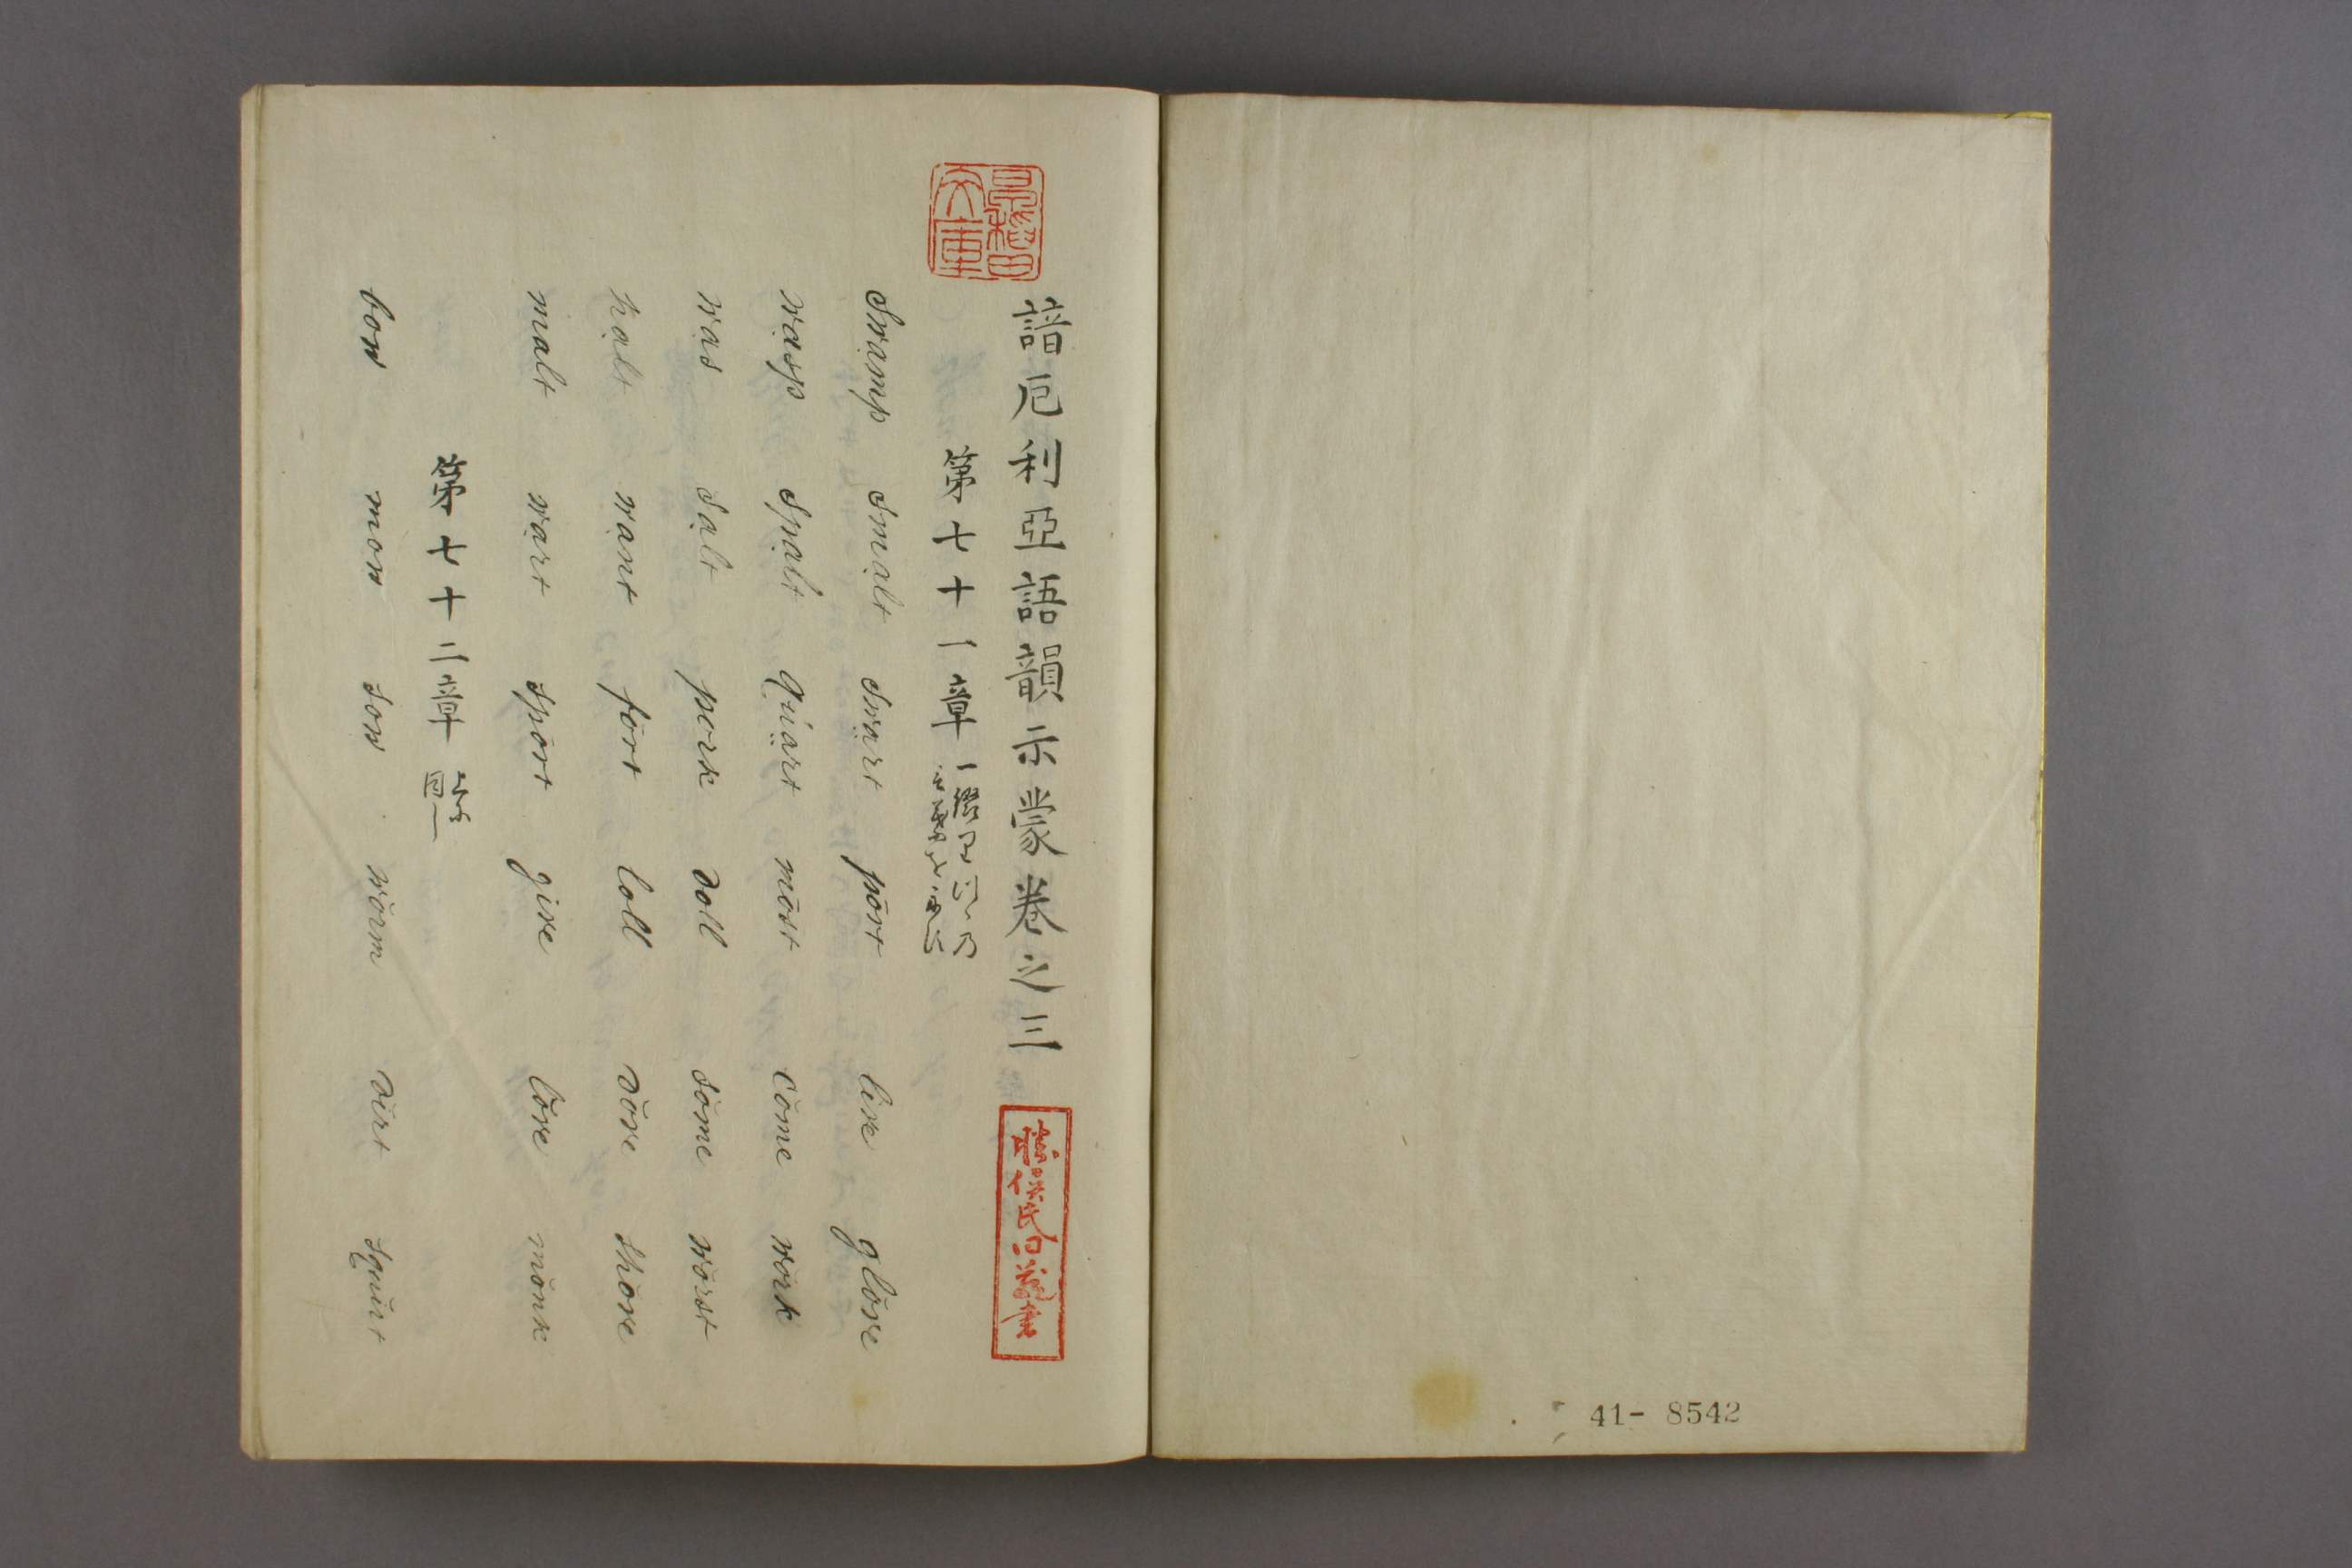 諳厄利亞語韻示蒙卷之三
第七十一章
swamp smalt swart pört live glöve
wasp spalt quart möst cöme work
was salt pork doll söme wörst
halt want fört loll döve shöve
malt wart spört give löve mönk
第七十二章
bow mow sow wörm dirt squirt
41- 8542